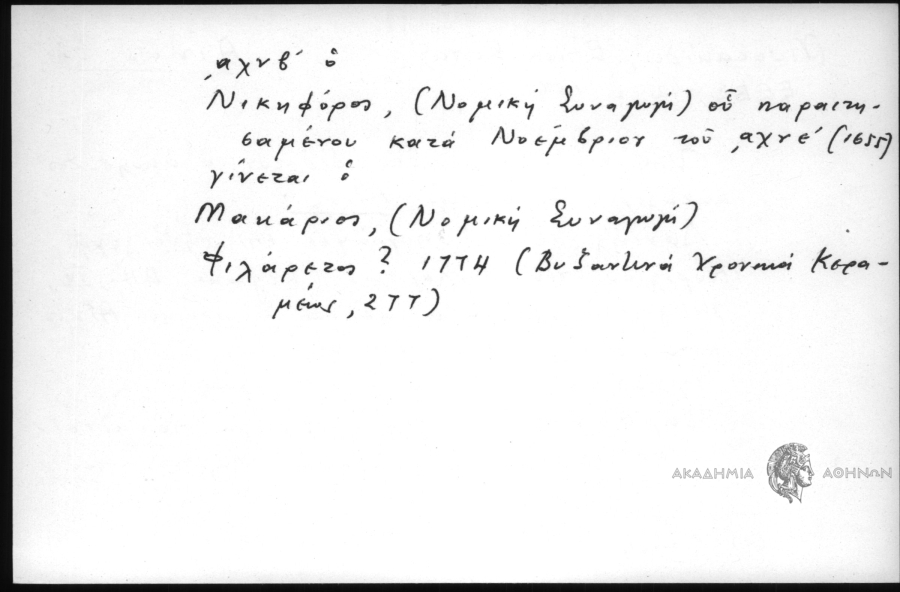 ͵αχνβ´ ὁ
Νικηφόρος, (Νομική Συναγωγή) οὗ παραιτη-
σαμένου κατά Νοέμβριον τοῦ ͵αχνέ (1655)
γίνεται ὁ
Μακάριος, (Νομική Συναγωγή)
Φιλάρετος ? 1774 (Βυζαντινά Χρονικά Κερα-
μέως, 277)
ΑΚΑΔΗΜΙΑ ΑΘΗΝΩΝ